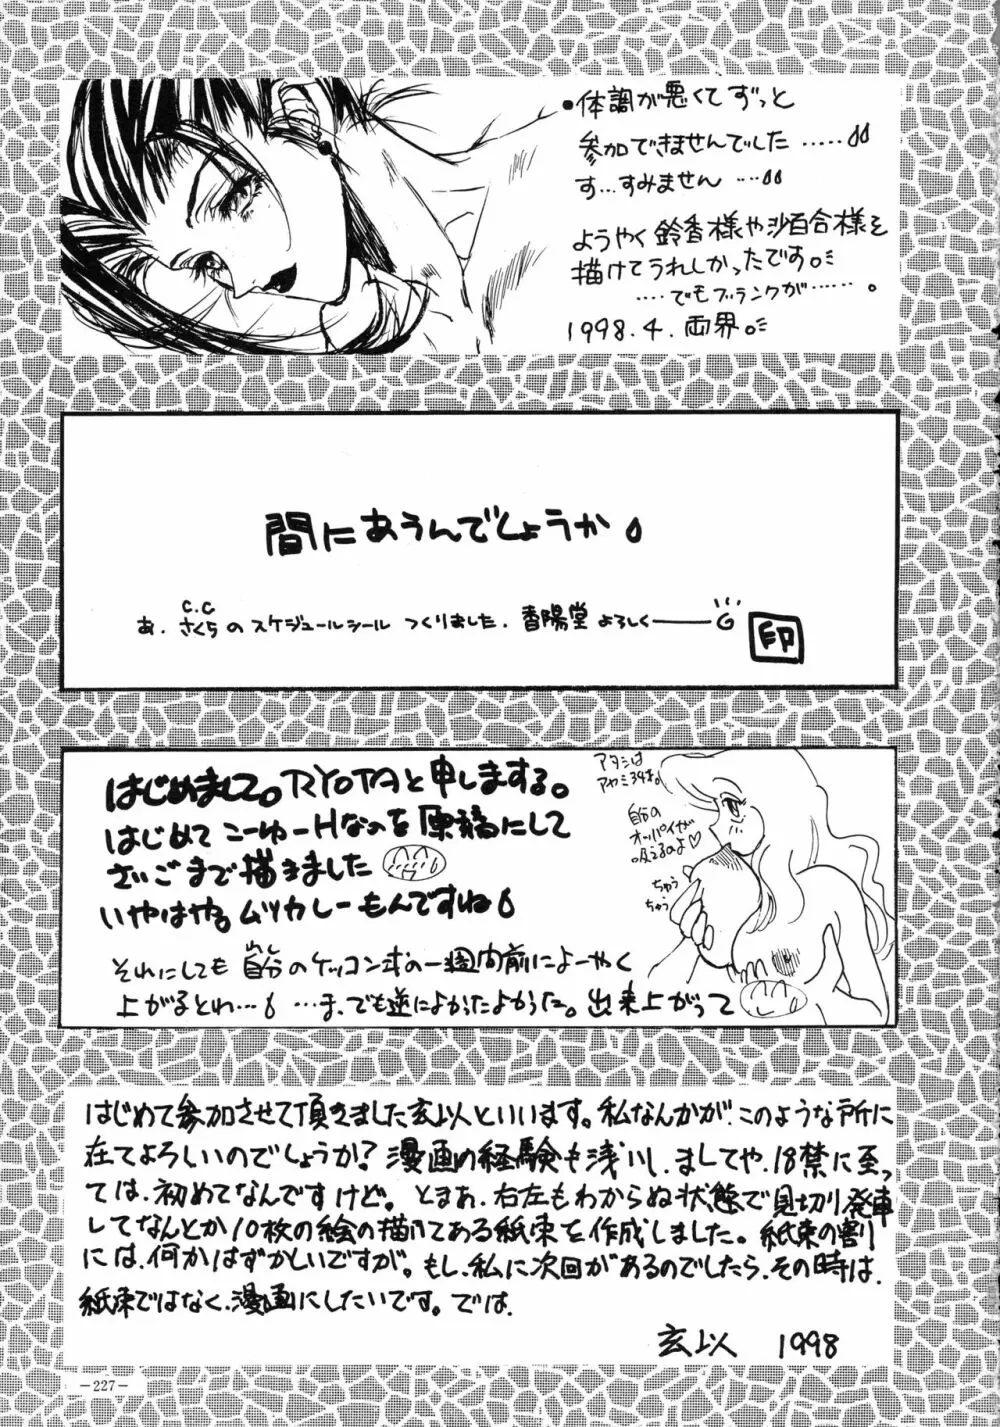 ●体調が悪くてずっと
参加できませんでした.....
す...すみません...
ようやく鈴香様や沙百合様を
描けてうれしかったです。
....でもブランクが......。
1998.4.両界。
間にあうんでしょうか
C.C
あ、さくらのスケジュールシールつくりました。香陽堂よろしくー
印
はじめまして。RYOTAと申しまする。
はじめてこーゆーHなのを原稿にして
さいごまで描きました
いやはや。ムツカシーもんですね
それにしても自分のケッコン式の一週間前によーやく
上がるとわ...
...ま、でも逆によかったよかった。出来上がって
アタシは
アヤミ34才。
自分の
オッパイが
吸えるのよ♡
ちゅう
ちゅう
はじめて参加させて頂きました玄以といいます。私なんかが、このような所に
在てよろしいのでしょうか?漫画の経験も浅いし、ましてや、18禁に至っ
ては、初めてなんですけど。とまあ、右左もわからぬ状態で見切り発車
してなんとか10枚の絵の描いてある紙束を作成しました。紙束の割り
には、何かはずかしいですが。もし、私に次回があるのでしたら、その時は、
紙束ではなく、漫画にしたいです。では、
玄以 1998
—227—